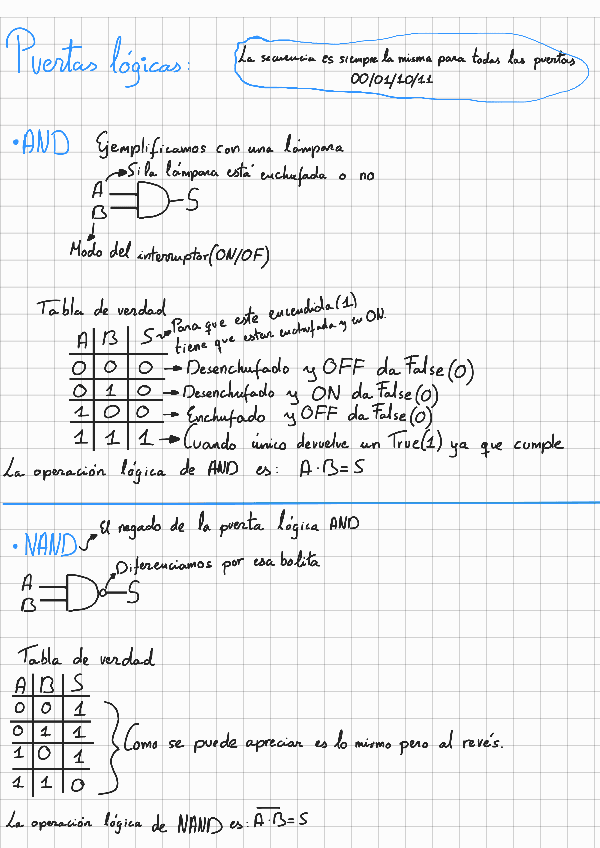 Puertas lógicas:
La secuencia es siempre la misma para todas las puertas
00/01/10/11
• AND
Ejemplificamos con una lámpara
Si la lámpara está enchufada o no
A
B
S
Modo del interruptor (ON/OF)
Tabla de verdad
Para que este encendida (1)
tiene que estar enchufada y en ON.
A B S
0 0 0 → Desenchufado y OFF da False (0)
0 1 0 → Desenchufado y ON da False (0)
1 0 0 → Enchufado y OFF da False (0)
1 1 1 → Cuando único devuelve un True(1) ya que cumple
La operación lógica de AND es: A·B=S
• NAND
El negado de la puerta lógica AND
Diferenciamos por esa bolita
A
B
S
Tabla de verdad
A B S
0 0 1
0 1 1
1 0 1
1 1 0
Como se puede apreciar es lo mismo pero al revés.
La operación lógica de NAND es: A̅·̅B̅=S